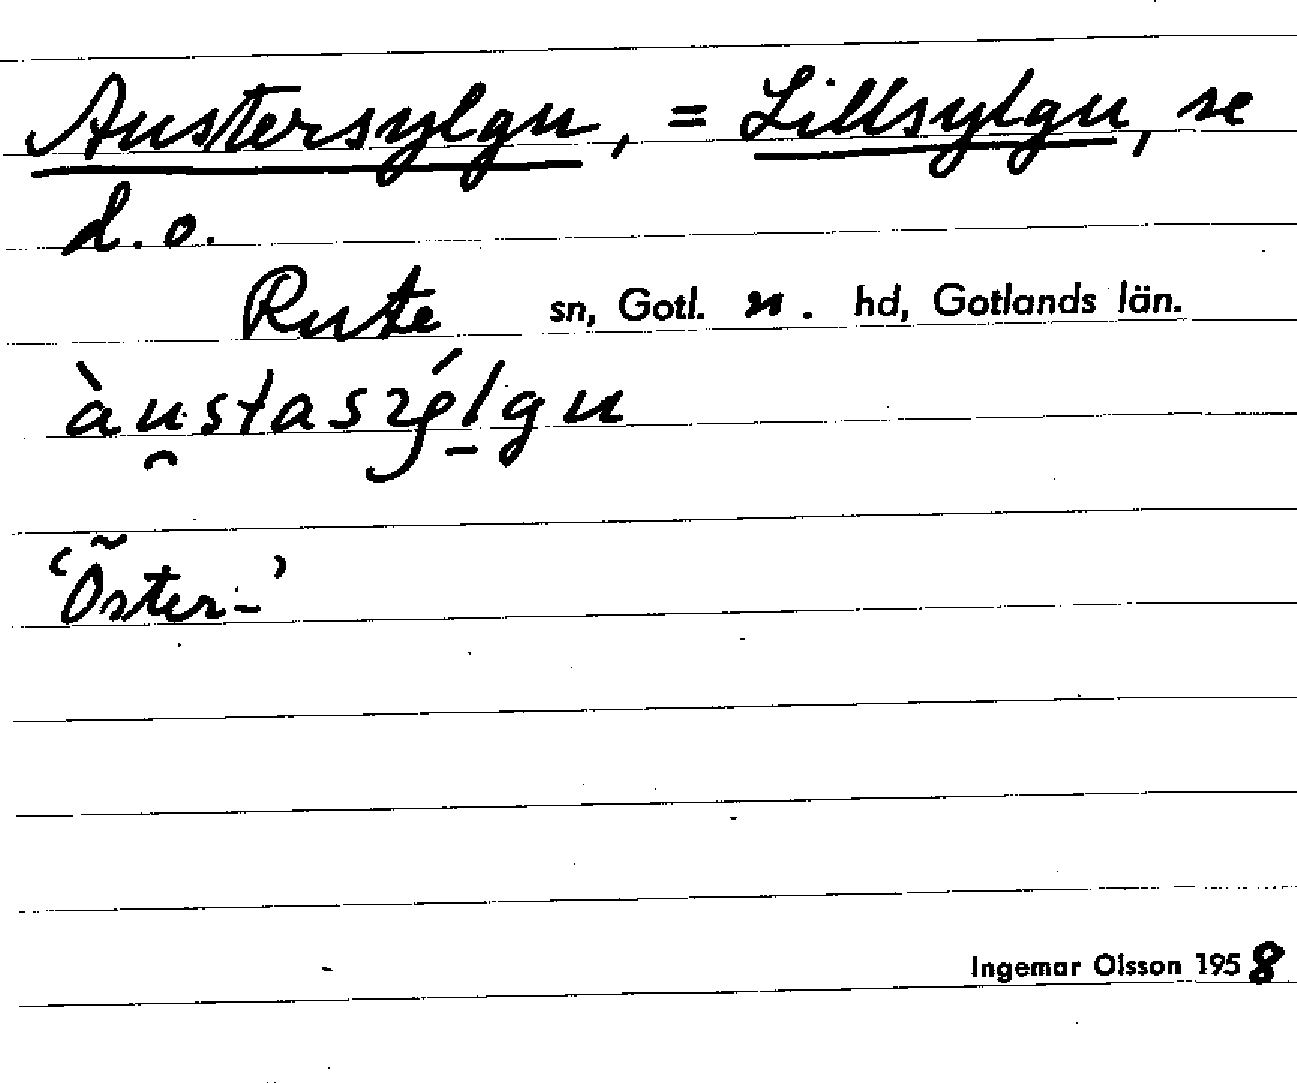 Austersylgu, = Lillsylgu, se
d.o.
Rute sn, Gotl. n. hd, Gotlands län.
'Öster-'
Ingemar Olsson 1958